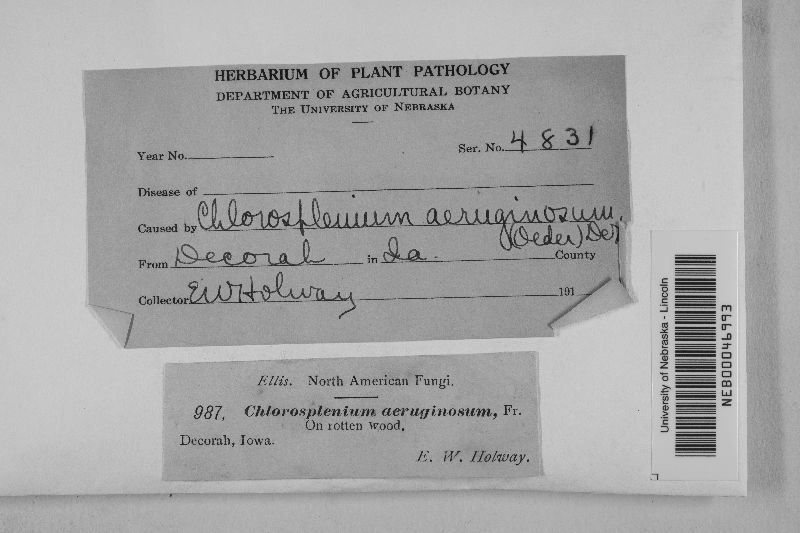 HERBARIUM OF PLANT PATHOLOGY
DEPARTMENT OF AGRICULTURAL BOTANY
THE UNIVERSITY OF NEBRASKA
Year No. Ser. No. 4831
Disease of
Caused by Chlorosplenium aeruginosum.
(Oeder) De
From Decorah in Ia. County
Collector EW Holway 191
Ellis. North American Fungi.
987. Chlorosplenium aeruginosum, Fr.
On rotten wood.
Decorah, Iowa.
E. W. Holway.
University of Nebraska - Lincoln
NEB00046993